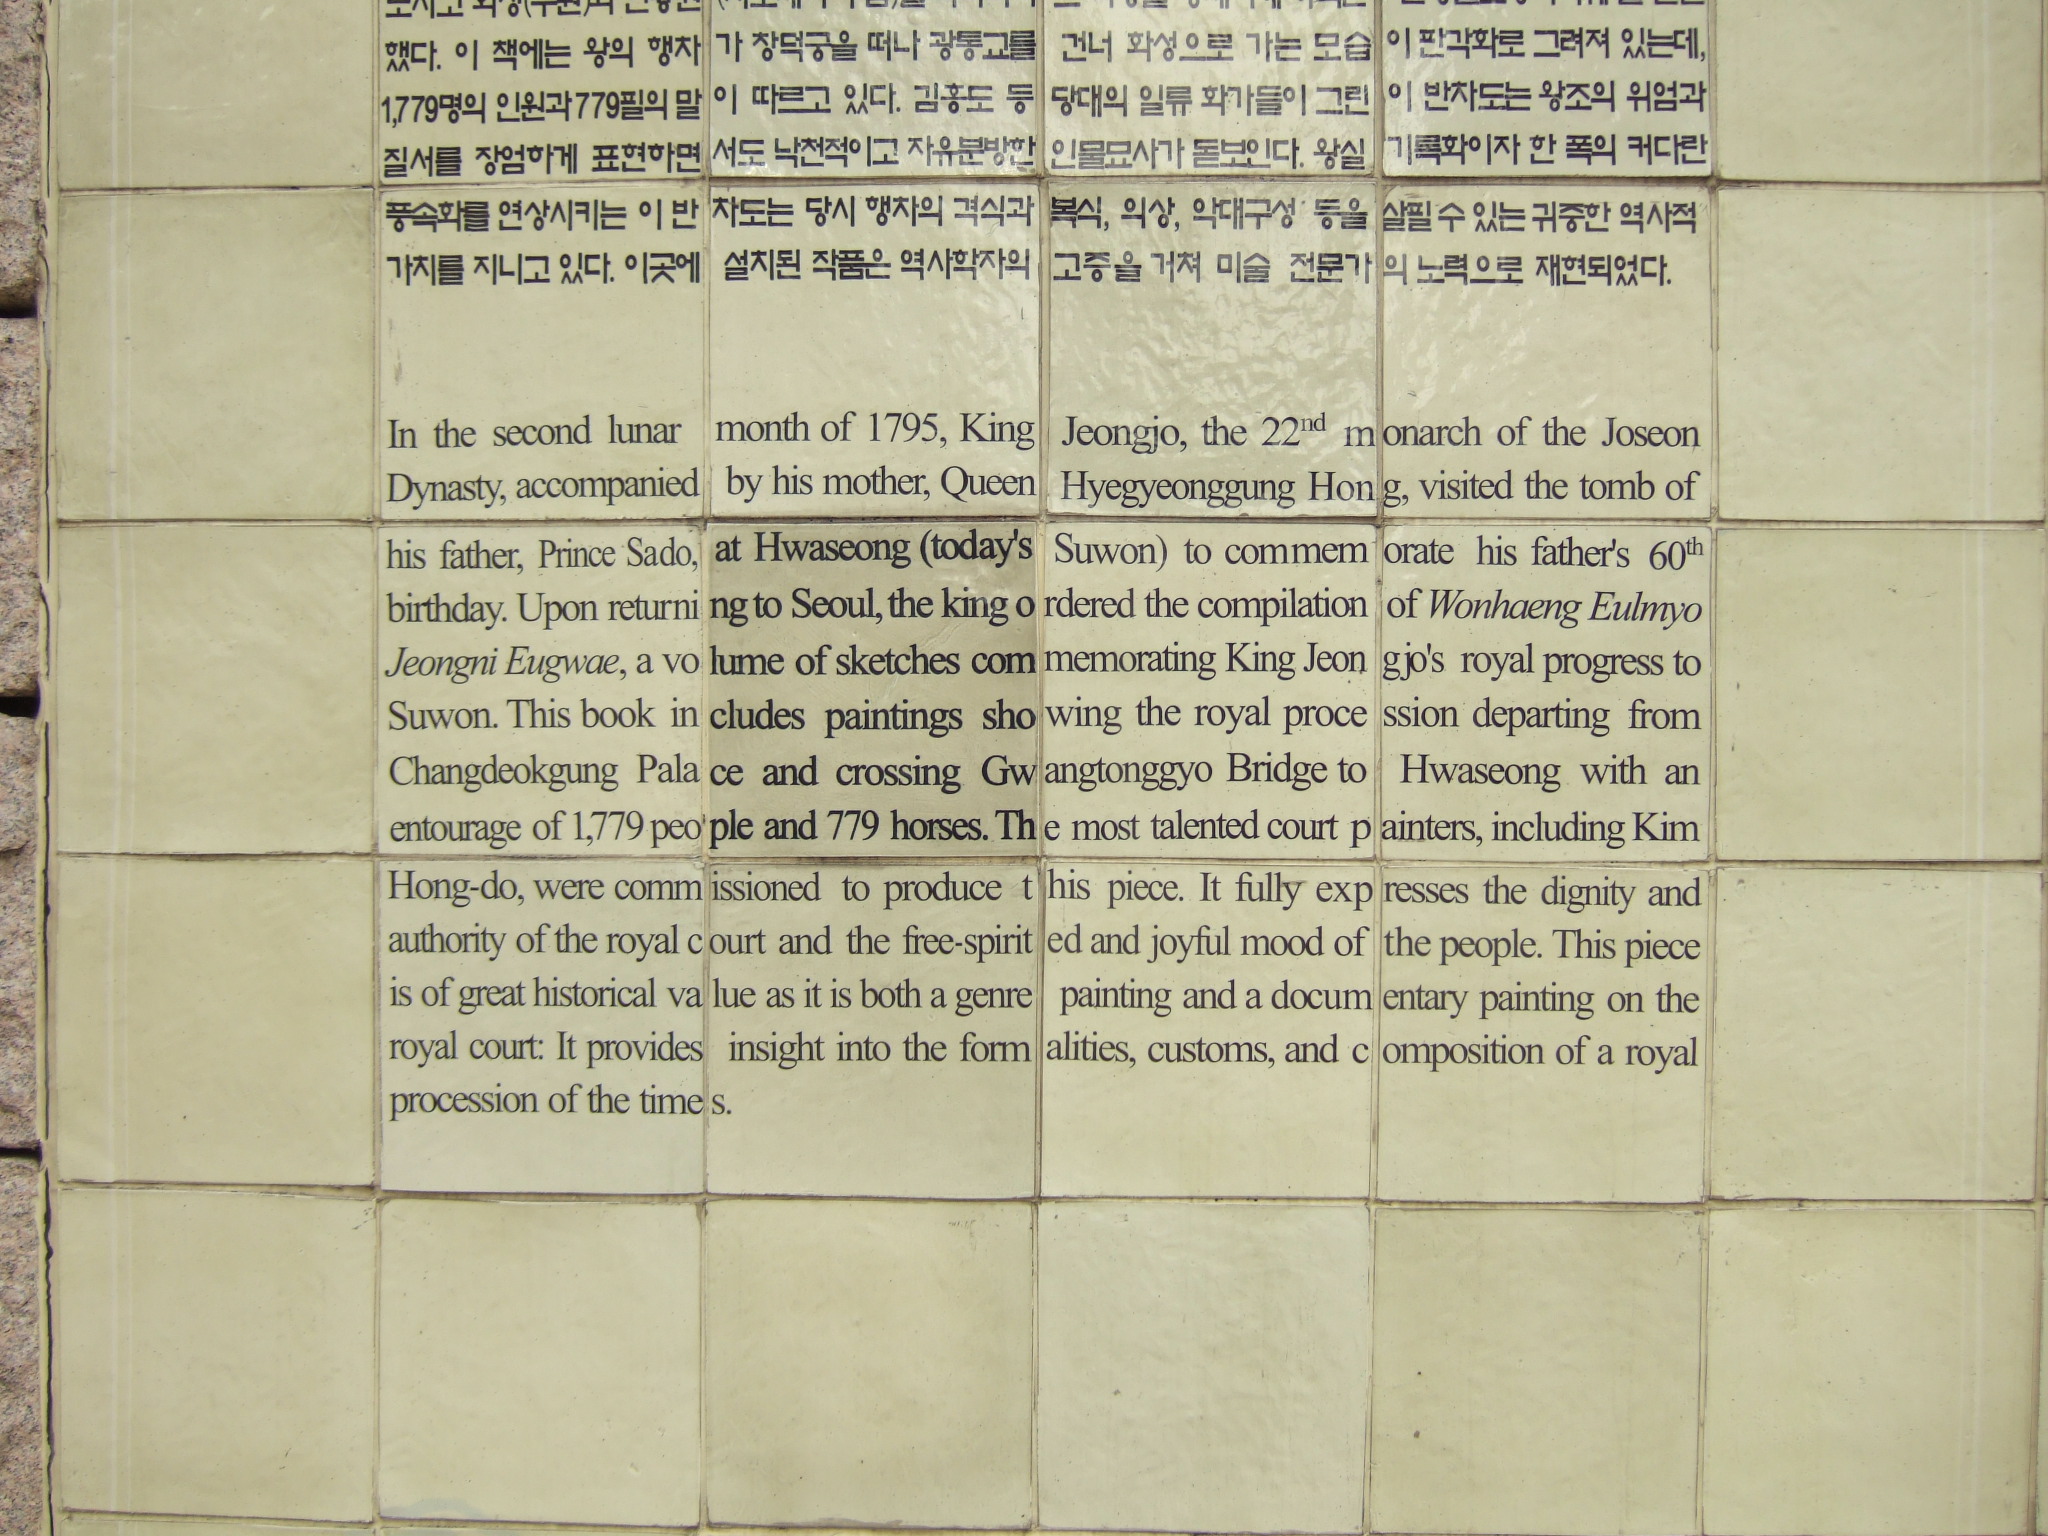 했다. 이 책에는 왕의 행차가 창덕궁을 떠나 광통교를 건너 화성으로 가는 모습이 판각화로 그려져 있는데,
1,779명의 인원과 779필의 말이 따르고 있다. 김홍도 등 당대의 일류 화가들이 그린 이 반차도는 왕조의 위엄과
질서를 장엄하게 표현하면서도 낙천적이고 자유분방한 인물묘사가 돋보인다. 왕실 기록화이자 한 폭의 커다란
풍속화를 연상시키는 이 반차도는 당시 행차의 격식과 복식, 의상, 악대구성 등을 살필 수 있는 귀중한 역사적
가치를 지니고 있다. 이곳에 설치된 작품은 역사학자의 고증을 거쳐 미술 전문가의 노력으로 재현되었다.
In the second lunar month of 1795, King Jeongjo, the 22nd monarch of the Joseon
Dynasty, accompanied by his mother, Queen Hyegyeonggung Hong, visited the tomb of
his father, Prince Sado, at Hwaseong (today's Suwon) to commemorate his father's 60th
birthday. Upon returning to Seoul, the king ordered the compilation of Wonhaeng Eulmyo
Jeongni Eugwae, a volume of sketches commemorating King Jeongjo's royal progress to
Suwon. This book includes paintings showing the royal procession departing from
Changdeokgung Palace and crossing Gwangtonggyo Bridge to Hwaseong with an
entourage of 1,779 people and 779 horses. The most talented court painters, including Kim
Hong-do, were commissioned to produce this piece. It fully expresses the dignity and
authority of the royal court and the free-spirited and joyful mood of the people. This piece
is of great historical value as it is both a genre painting and a documentary painting on the
royal court: It provides insight into the formalities, customs, and composition of a royal
procession of the times.